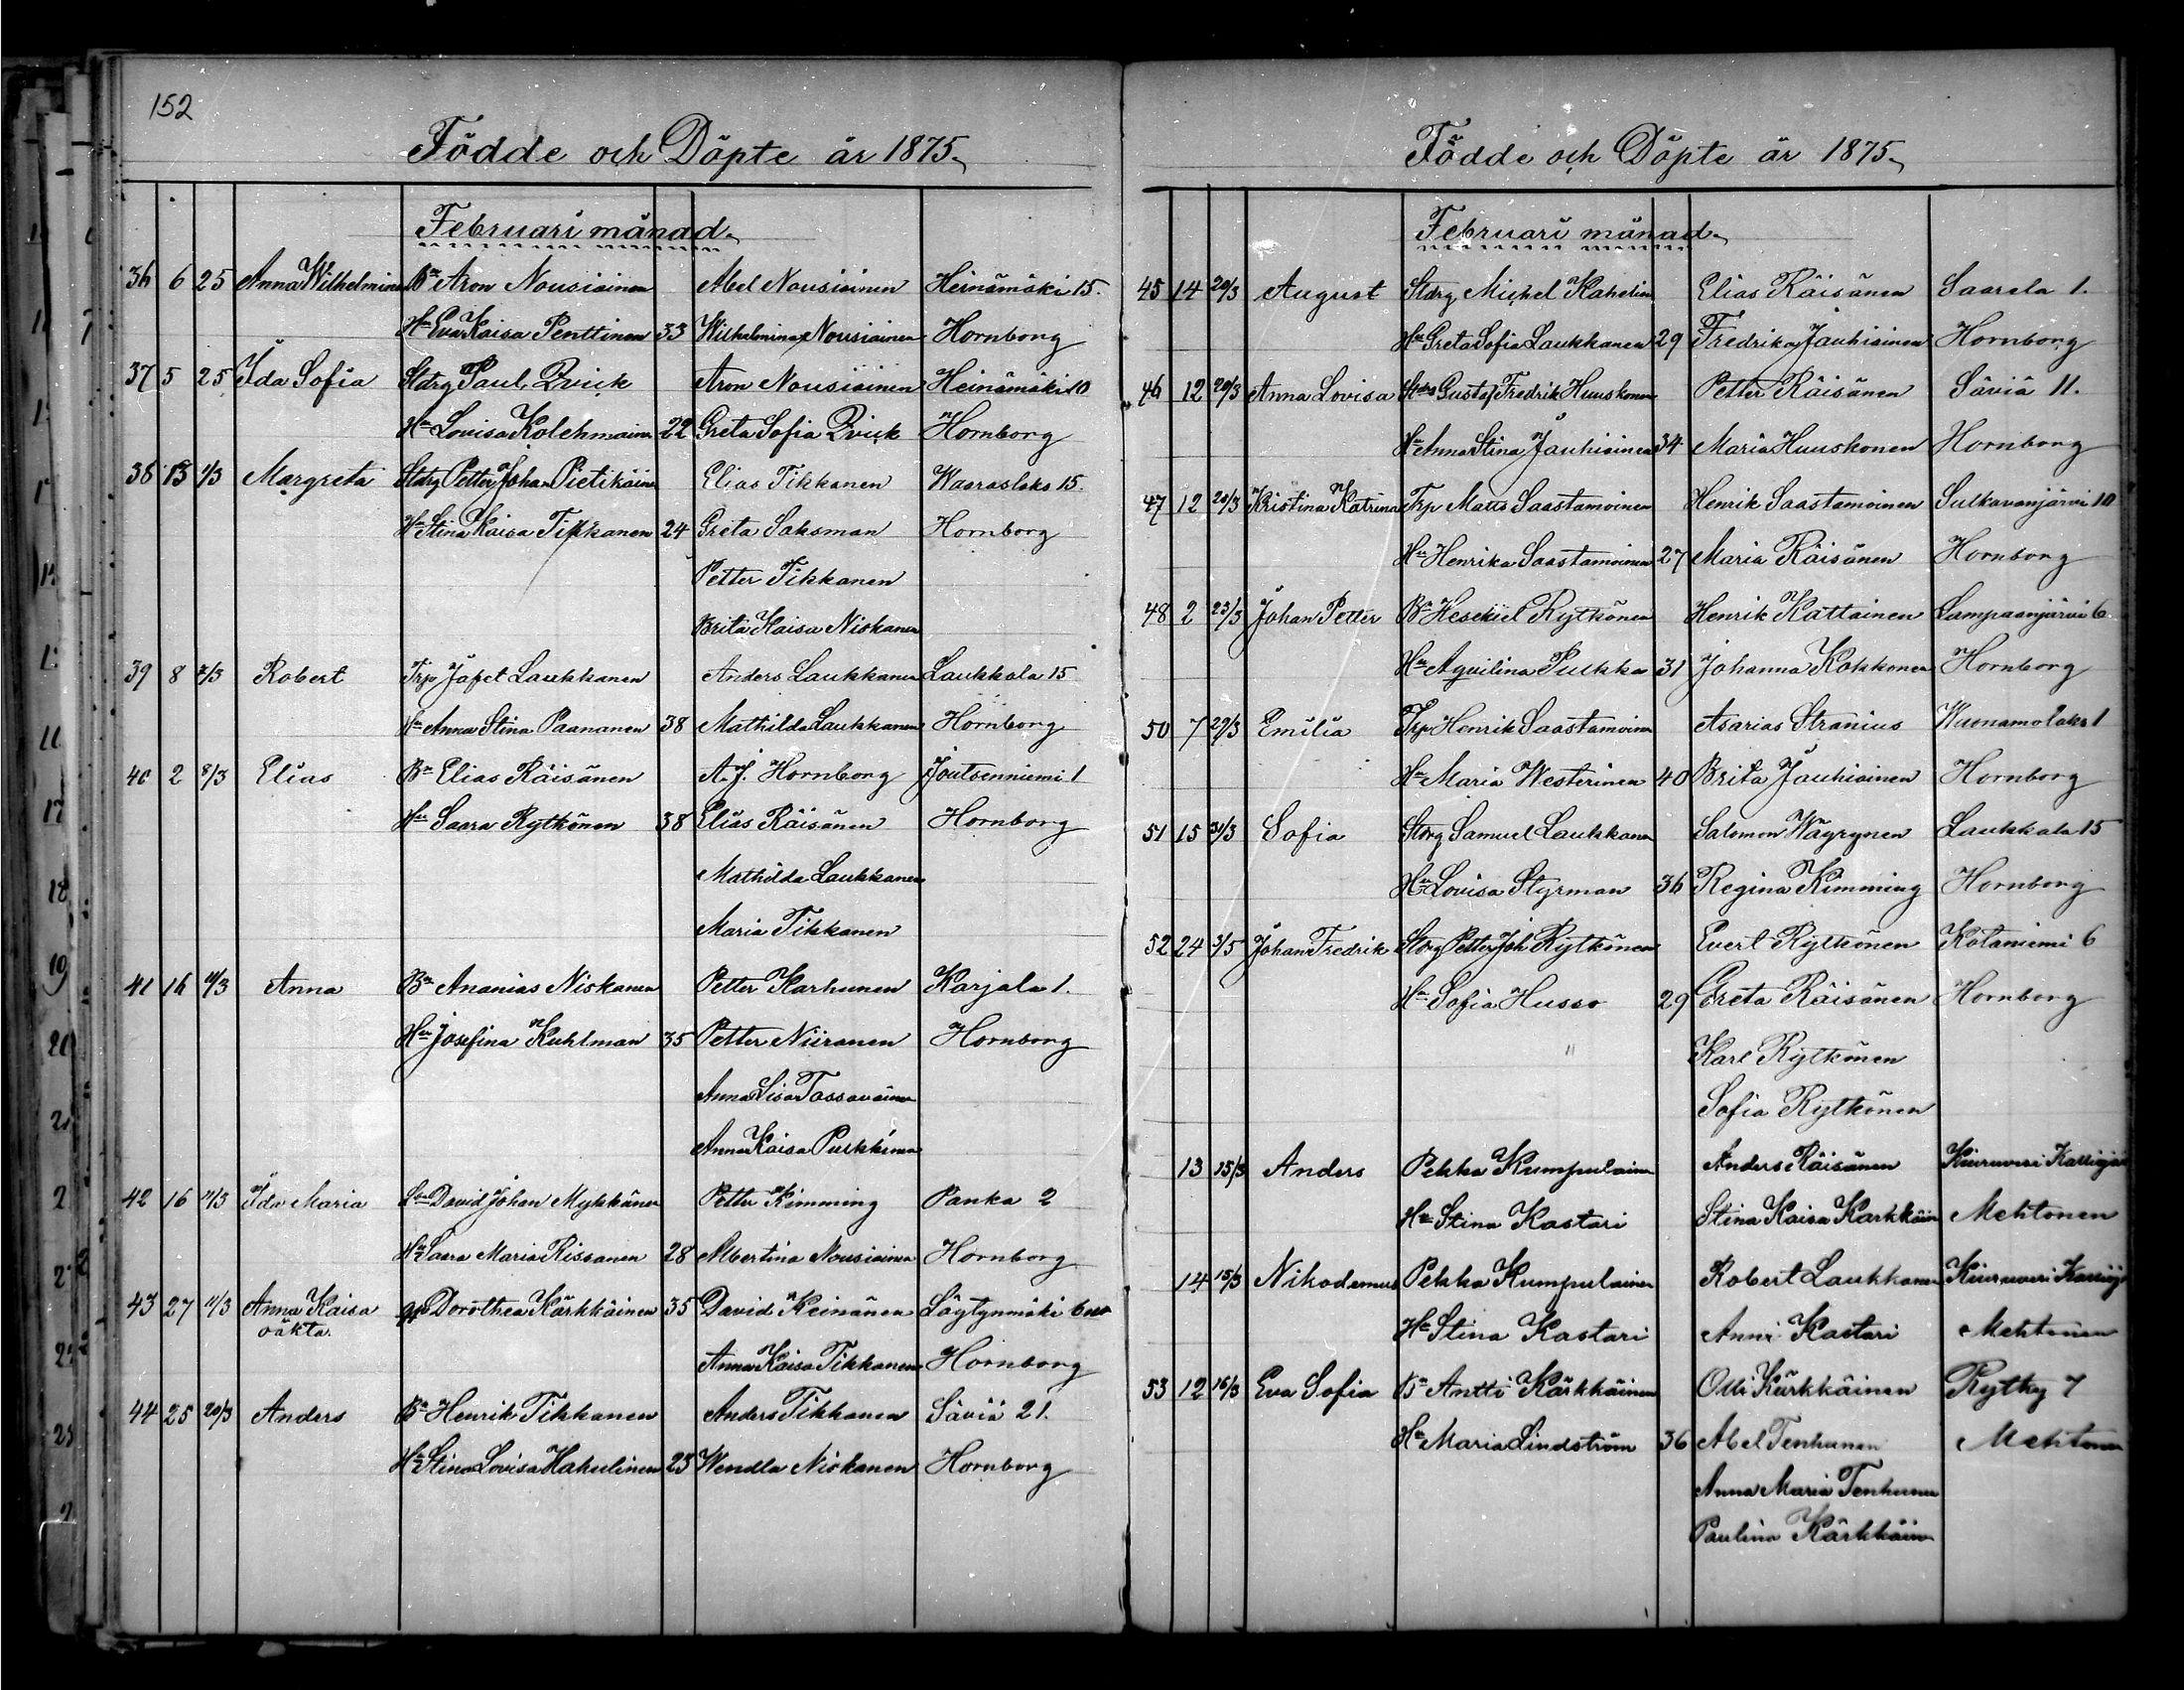 152
Födde och Döpte år 1875.
Februari månad.
36 6 25 Anna Wilhelmina Bn Aron Nousiainen Abel Nousiainen Heinämäki 15.
Hu Eva Kaisa Penttinen 33 Wilhelmina Nousiainen Hornborg
37 5 25 Ida Sofia Stdrg Paul Qvick Aron Nousiainen Heinämäki 10
Hu Lovisa Kolehmainen 22 Greta Sofia Qvick Hornborg
38 13 1/3 Margreta Stdrg Petter Johan Pietikäinen Elias Tikkanen Waaraslaks 15.
Hu Stina Kaisa Tikkanen 24 Greta Saksman Hornborg
Petter Tikkanen
Brita Kaisa Niskanen
39 8 7/3 Robert Trp Jafet Laukkanen Anders Laukkanen Laukkala 15
Hu Anna Stina Paananen 38 Mathilda Laukkanen Hornborg
40 2 8/3 Elias Bn Elias Räisänen A. J. Hornborg Joutsenniemi 1
Hu Saara Rytkönen 38 Elias Räisänen Hornborg
Mathilda Laukkanen
Maria Tikkanen
41 16 11/3 Anna Bn Ananias Niskanen Petter Karhunen Karjala 1.
Hu Josefina Kuhlman 35 Petter Niiranen Hornborg
Anna Lisa Tossavainen
Anna Kaisa Purkkinen
42 16 11/3 Ida Maria David Johan Mykkänen Petter Kimming Panka 2
Hu Saara Maria Rissanen 28 Albertina Nousiainen Hornborg
43 27 11/3 Anna Kaisa Dorothea Kärkkäinen 35 David Keinänen Löytynmäki 6
oäkta.
Anna Kaisa Tikkanen Hornborg
44 25 20/3 Anders Bn Henrik Tikkanen Anders Tikkanen Säviä 21.
Hu Stina Lovisa Hakulinen 23 Wendla Niskanen Hornborg
Födde och Döpte år 1875.
Februari månad.
45 14 20/3 August Stdrg Michel Kahelin Elias Räisänen Saarela 1.
Hu Greta Sofia Laukkanen 29 Fredrika Jauhiainen Hornborg
46 12 20/3 Anna Lovisa Gustaf Fredrik Huuskonen Petter Räisänen Säviä 11.
Hu Anna Stina Jauhiainen 34 Maria Huuskonen Hornborg
47 12 20/3 Kristina Katrina Trp Matts Saastamoinen Henrik Saastamoinen Sulkavanjärvi 10
Hu Henrika Saastamoinen 27 Maria Räisänen Hornborg
48 2 23/3 Johan Petter Bn Hesekiel Rytkönen Henrik Kattainen Lampaanjärvi 6
Hu Aqvilina Pulkka 31 Johanna Kokkonen Hornborg
50 7 29/3 Emilia Trp Henrik Saastamoinen Asarias Stranius Wuonamolaks 1
Hu Maria Westerinen 40 Brita Jauhiainen Hornborg
51 15 31/3 Sofia Stdrg Samuel Laukkanen Salomon Wäyrynen Laukkala 15
Hu Lovisa Styrman 36 Regina Kimming Hornborg
52 24 3/5 Johan Fredrik Stdrg Petter Joh Rytkönen Evert Rytkönen Kotaniemi 6
Hu Sofia Husso 29 Greta Räisänen Hornborg
Karl Rytkönen
Sofia Rytkönen
13 15/3 Anders Pekka Kumpulainen Anders Räisänen Kiuruvesi
Hu Stina Kastari Stina Kaisa Karkkäin Mehtonen
14 15/3 Nikodemus Pekka Kumpulainen Robert Laukkanen Kiuruvesi
Hu Stina Kastari Anni Kastari Mehtonen
53 12 16/3 Eva Sofia Bn Antti Kärkkäinen Olli Kärkkäinen Rytky 7
Hu Maria Lindström 36 Abel Tenhunen Mehtonen
Anna Maria Tenhunen
Paulina Kärkkäin